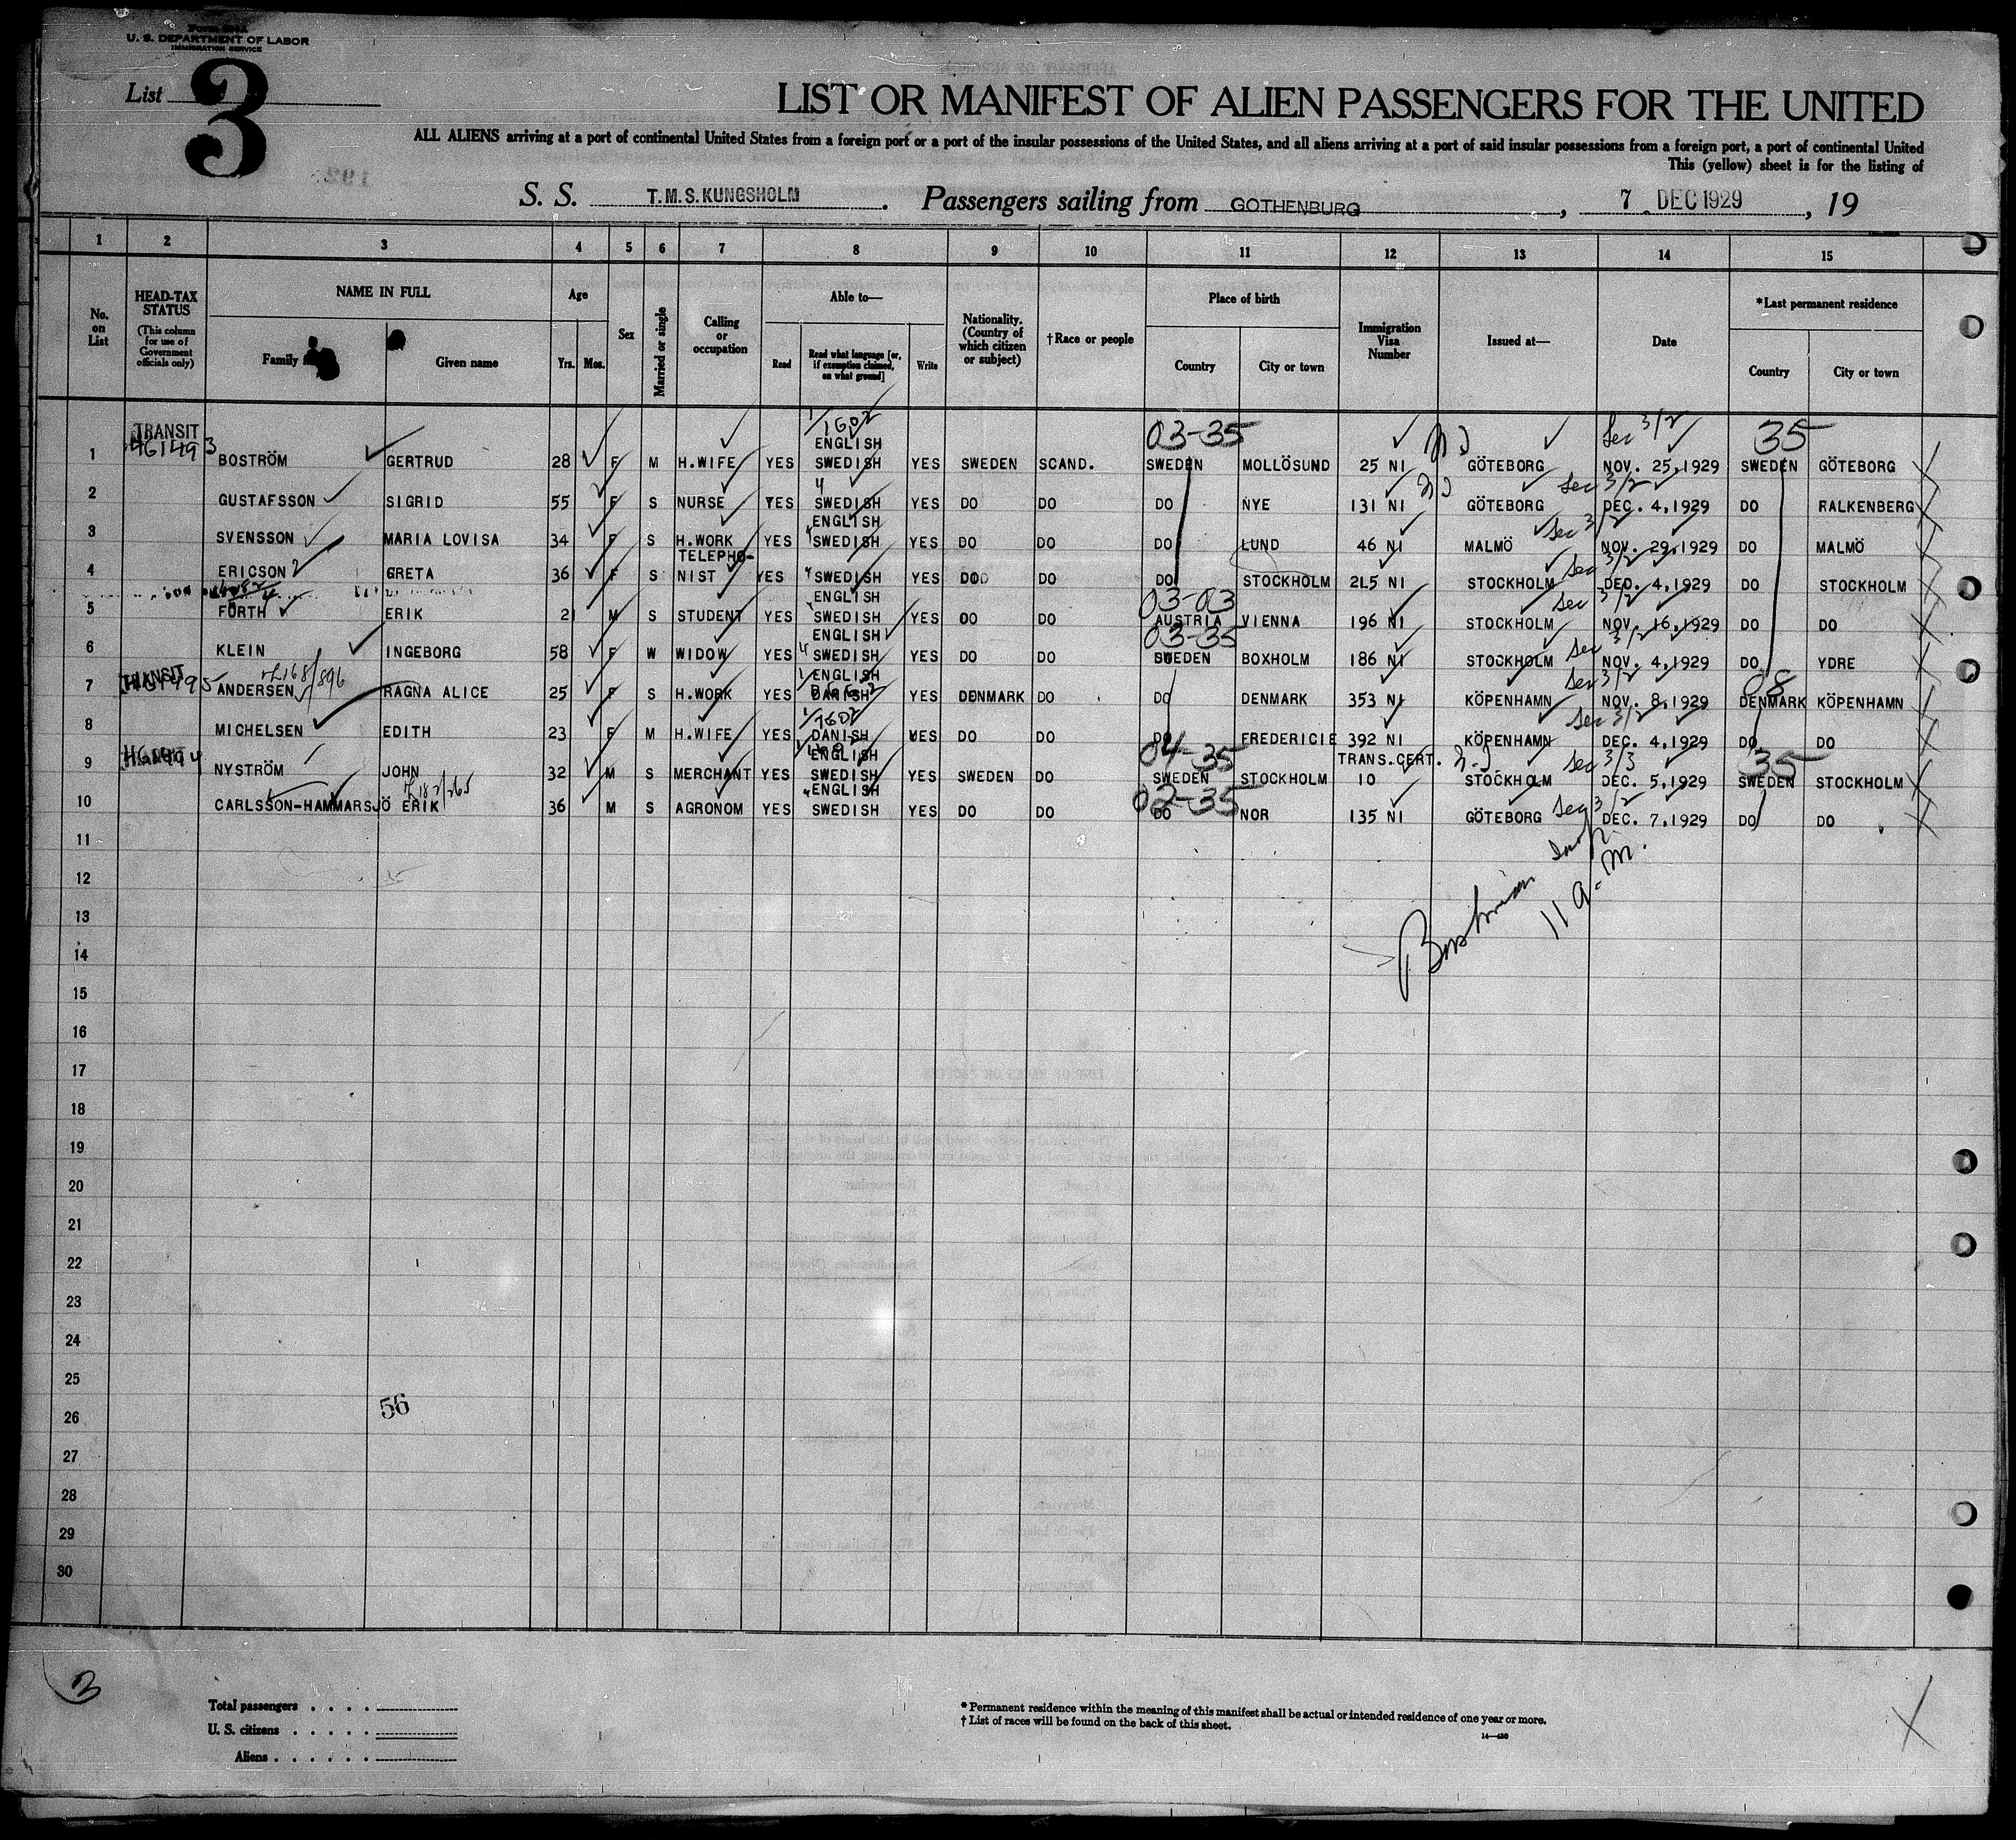 U. S. DEPARTMENT OF LABOR
IMMIGRATION SERVICE
List 3
LIST OR MANIFEST OF ALIEN PASSENGERS FOR THE UNITED
ALL ALIENS arriving at a port of continental United States from a foreign port or a port of the insular possessions of the United States, and all aliens arriving at a port of said insular possessions from a foreign port, a port of continental United
This (yellow) sheet is for the listing of
S. S. T.M.S.KUNGSHOLM . Passengers sailing from GOTHENBURG , 7 DEC 1929 , 19
1 2 3 4 5 6 7 8 9 10 11 12 13 14 15
No. on List
HEAD-TAX STATUS (This column for use of Government officials only)
NAME IN FULL
Family Given name
Age
Yrs. Mos.
Sex
Married or single
Calling or occupation
Able to—
Read Read what language [or, if exemption claimed, on what ground] Write
Nationality. (Country of which citizen or subject)
†Race or people
Place of birth
Country City or town
Immigration Visa Number
Issued at—
Date
*Last permanent residence
Country City or town
TRANSIT 1602 03-35 Sec 3/2 35
ENGLISH
1 BOSTRÖM GERTRUD 28 F M H.WIFE YES SWEDISH YES SWEDEN SCAND. SWEDEN MOLLÖSUND 25 NI GÖTEBORG NOV. 25,1929 SWEDEN GÖTEBORG
Sec 3/2
2 GUSTAFSSON SIGRID 55 F S NURSE YES SWEDISH YES DO DO DO NYE 131 NI GÖTEBORG DEC. 4,1929 DO RALKENBERG
ENGLISH Sec 3/2
3 SVENSSON MARIA LOVISA 34 F S H.WORK YES SWEDISH YES DO DO DO LUND 46 NI MALMÖ NOV. 29.1929 DO MALMÖ
TELEPHO- Sec 3/2
4 ERICSON GRETA 36 F S NIST YES SWEDISH YES DO DO DO STOCKHOLM 215 NI STOCKHOLM DEC. 4,1929 DO STOCKHOLM
ENGLISH 03-03 Sec 3/2
5 FÜRTH ERIK 21 M S STUDENT YES SWEDISH YES DO DO AUSTRIA VIENNA 196 NI STOCKHOLM NOV. 16,1929 DO DO
ENGLISH 03-35 Sec 3/2
6 KLEIN INGEBORG 58 F W WIDOW YES SWEDISH YES DO DO SWEDEN BOXHOLM 186 NI STOCKHOLM NOV. 4,1929 DO YDRE
TRANSIT ENGLISH Sec 3/2 08
7 ANDERSEN RAGNA ALICE 25 F S H.WORK YES DANISH YES DENMARK DO DO DENMARK 353 NI KÖPENHAMN NOV. 8,1929 DENMARK KÖPENHAMN
1602 Sec 3/2
8 MICHELSEN EDITH 23 F M H.WIFE YES DANISH YES DO DO DO FREDERICIE 392 NI KÖPENHAMN DEC. 4,1929 DO DO
ENGLISH 04-35 TRANS.CERT. Sec 3/3 35
9 NYSTRÖM JOHN 32 M S MERCHANT YES SWEDISH YES SWEDEN DO SWEDEN STOCKHOLM 10 STOCKHOLM DEC. 5,1929 SWEDEN STOCKHOLM
ENGLISH 02-35 Sec 3/2
10 CARLSSON-HAMMARSJÖ ERIK 36 M S AGRONOM YES SWEDISH YES DO DO DO NOR 135 NI GÖTEBORG DEC. 7,1929 DO DO
11
12
11 a.m.
13
14
15
16
17
18
19
20
21
22
23
24
25
26 56
27
28
29
30
3
Total passengers
U. S. citizens
Aliens
* Permanent residence within the meaning of this manifest shall be actual or intended residence of one year or more.
† List of races will be found on the back of this sheet.